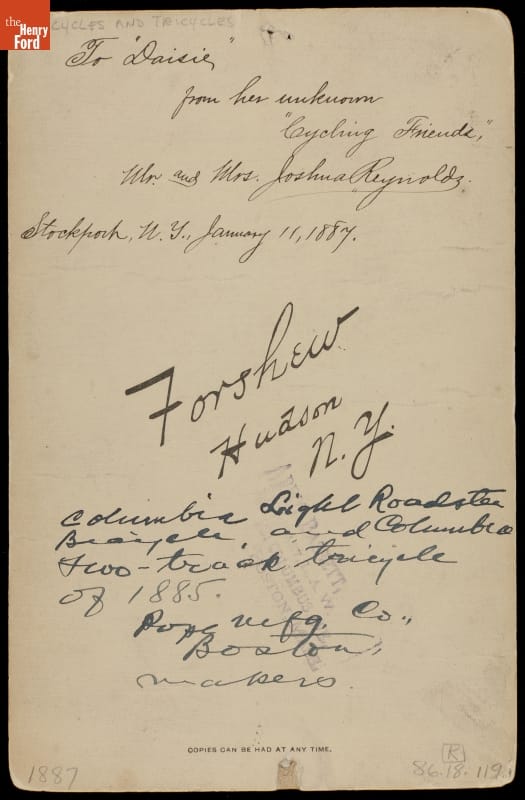 the
Henry
Ford
CYCLES AND TRICYCLES
To "Daisie,"
from her unknown
"Cycling Friends,"
Mr. and Mrs. Joshua Reynolds.
Stockport, N.Y., January 11, 1887.
Forshew
Hudson
N.Y.
Columbia Light Roadster
Bicycle, and Columbia
two-track tricycle
of 1885.
Pope Mfg. Co.,
Boston,
makers
COPIES CAN BE HAD AT ANY TIME.
1887
K
86.18.119.